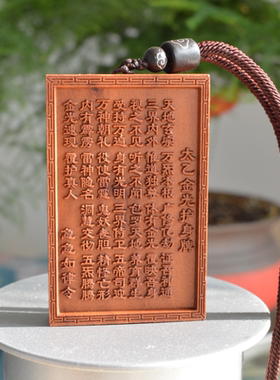 太乙金光护身牌
天地玄宗 万炁本根 广修亿劫 证吾神通
三界内外 惟道独尊 体有金光 覆映吾身
视之不见 听之不闻 包罗天地 养育群生
受持万遍 身有光明 三界侍卫 五帝司迎
万神朝礼 役使雷霆 鬼妖丧胆 精怪亡形
内有霹雳 雷神隐名 洞慧交彻 五炁腾腾
金光速现 覆护真人 急急如律令